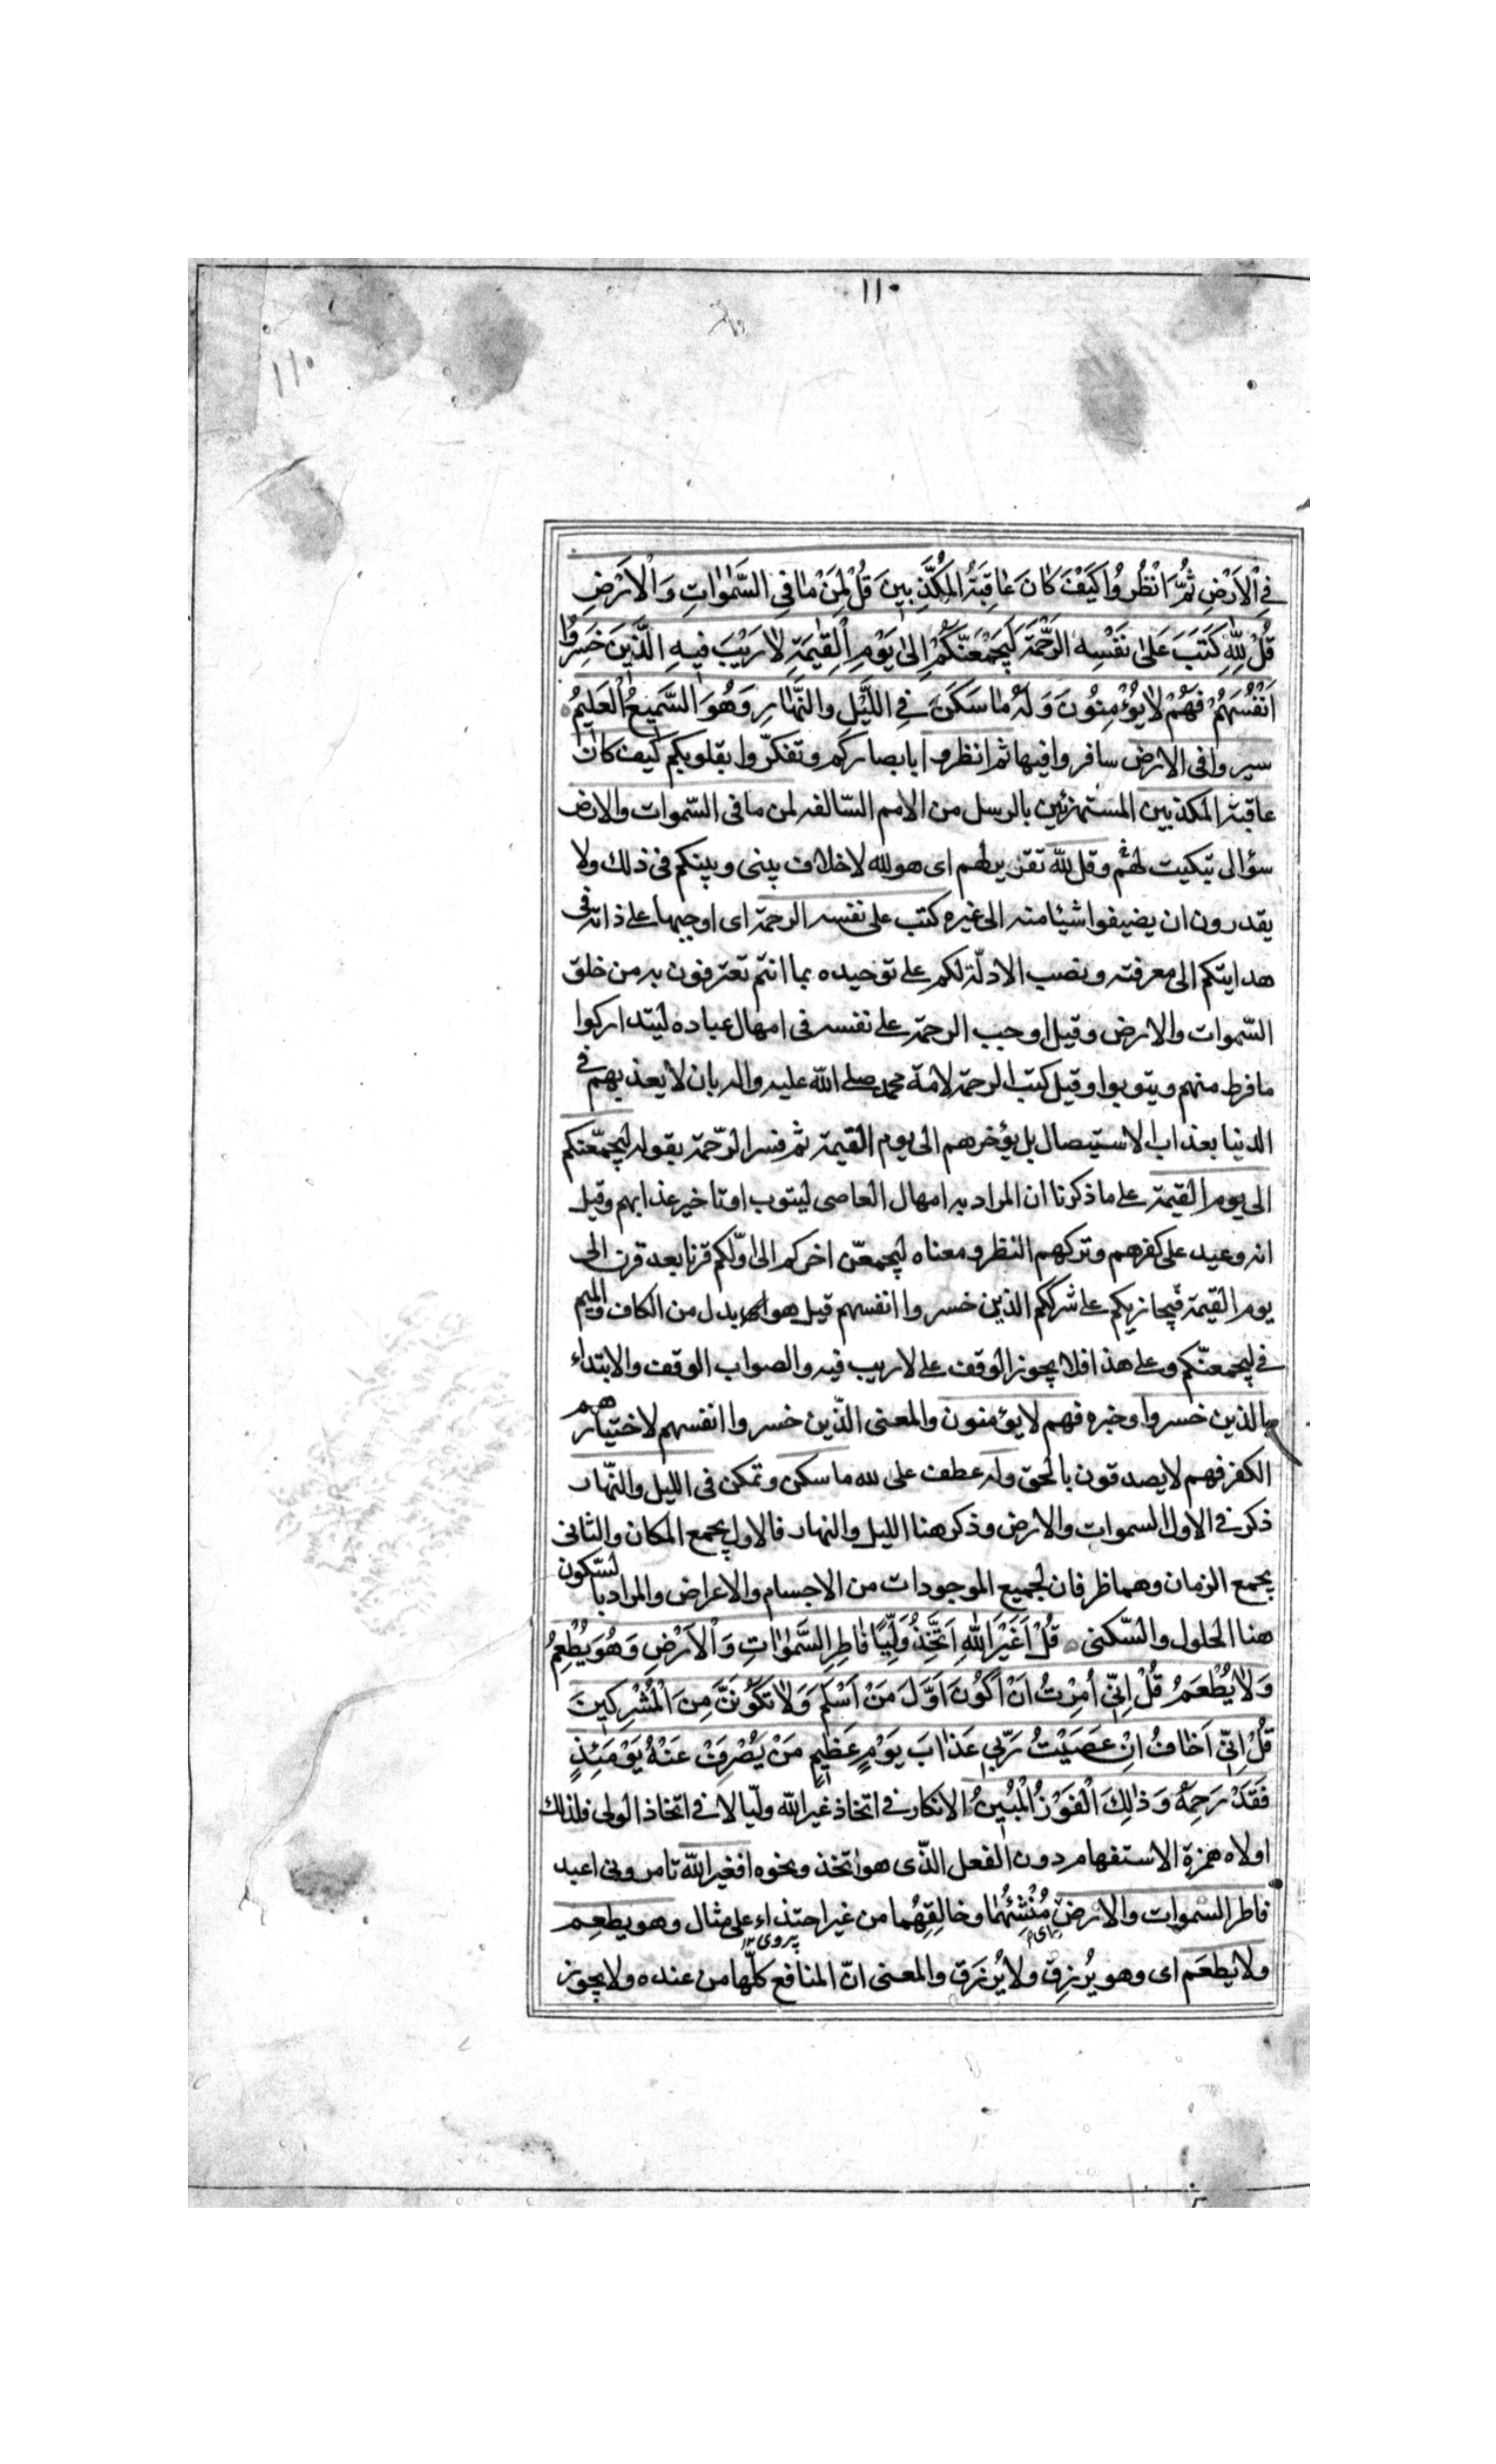 ١١٠
١١٠
فِي الْاَرْضِ ثُمَّ انْظُرُوا كَيْفَ كَانَ عٰاقِبَةُ الْمُكَذِّبِينَ قُلْ لِمَنْ مٰا فِي السَّمٰوٰاتِ وَالْاَرْضِ
قُلْ لِلّٰهِ كَتَبَ عَلىٰ نَفْسِهِ الرَّحْمَةَ لَيَجْمَعَنَّكُمْ اِلىٰ يَوْمِ الْقِيٰمَةِ لٰا رَيْبَ فيهِ الَّذينَ خَسِرُوا
اَنْفُسَهُمْ فَهُمْ لٰا يُؤْمِنُونَ وَلَهُ مٰا سَكَنَ فِي اللَّيْلِ وَالنَّهٰارِ وَهُوَ السَّمِيعُ الْعَلِيمُ
سيروا فى الارض سافروا فيها ثم انظروا بابصاركم وتفكّروا بقلوبكم كيف كان
عاقبة المكذبين المستهزئين بالرسل من الامم السّالفه لمن ما فى السّموات والارض
سؤال تبكيت لهم وقل للّه تقرير لهم اى هو لله لا خلاف بينى وبينكم فى ذلك ولا
يقدرون ان يضيفوا شيئا منه الى غيره كتب على نفسه الرحمة اى اوجبها على ذاته فى
هدايتكم الى معرفته ونصب الادلّة لكم على توحيده بما انتم تعترفون به من خلق
السّموات والارض وقيل اوجب الرحمة على نفسه فى امهال عباده ليتداركوا
ما فرط منهم ويتوبوا وقيل كتب الرحمة لامة محمد صلى اللّه عليه واله بان لا يعذبهم فى
الدنيا بعذاب الاستيصال بل يؤخرهم الى يوم القيمة ثم فسر الرّحمة بقوله ليجمعّنكم
الى يوم القيمة على ما ذكرنا ان المراد به امهال العاصى ليتوب او تاخير عذابهم وقيل
انه وعيد على كفرهم وتركهم النظر ومعناه ليجمعنّ اخركم الى اوّلكم قرنا بعد قرن الى
يوم القيمة فيجازيكم على شرككم الذين خسروا انفسهم قيل هو بدل من الكاف والميم
فى ليجمعنّكم وعلى هذا فلا يجوز الوقف على لا ريب فيه والصواب الوقف والابتداء
بالذين خسروا وخبره فهم لا يؤمنون والمعنى الذّين خسروا انفسهم لاختيارهم
الكفر فهم لا يصدقون بالحق وله عطف على لله ما سكن وتمكن فى الليل والنّهار
ذكر فى الاول السموات والارض وذكر هنا الليل والنهار فالاول يجمع المكان والثانى
يجمع الزمان وهما ظرفان لجميع الموجودات من الاجسام والاعراض والمراد بالسّكون
هنا الحلول والسّكنى قُلْ اَغَيْرَ اللّٰهِ اَتَّخِذُ وَلِيًّا فٰاطِرِ السَّمٰوٰاتِ وَالْاَرْضِ وَهُوَ يُطْعِمُ
وَلٰا يُطْعَمُ قُلْ اِنّي اُمِرْتُ اَنْ اَكُونَ اَوَّلَ مَنْ اَسْلَمَ وَلٰا تَكُونَنَّ مِنَ الْمُشْرِكينَ
قُلْ اِنّي اَخٰافُ اِنْ عَصَيْتُ رَبّي عَذٰابَ يَوْمٍ عَظيمٍ مَنْ يُصْرَفْ عَنْهُ يَوْمَئِذٍ
فَقَدْ رَحِمَهُ وَذٰلِكَ الْفَوْزُ الْمُبينُ الانكار فى اتخاذ غير اللّه وليّا لا فى اتخاذ الولى فلذلك
اولاه همزة الاستفهام دون الفعل الذّى هو اتخذ ونحوه افغير اللّه تامرونى اعبد
فاطر السموات والارض مُنْشِئُهُما وخالِقِهُما من غير احتذاء على مثال وهو يطعِم
پيروى
ولا يطعَم اى وهو يُرزِق ولا يُرزَق والمعنى انّ المنافع كلّها من عنده ولا يجوز